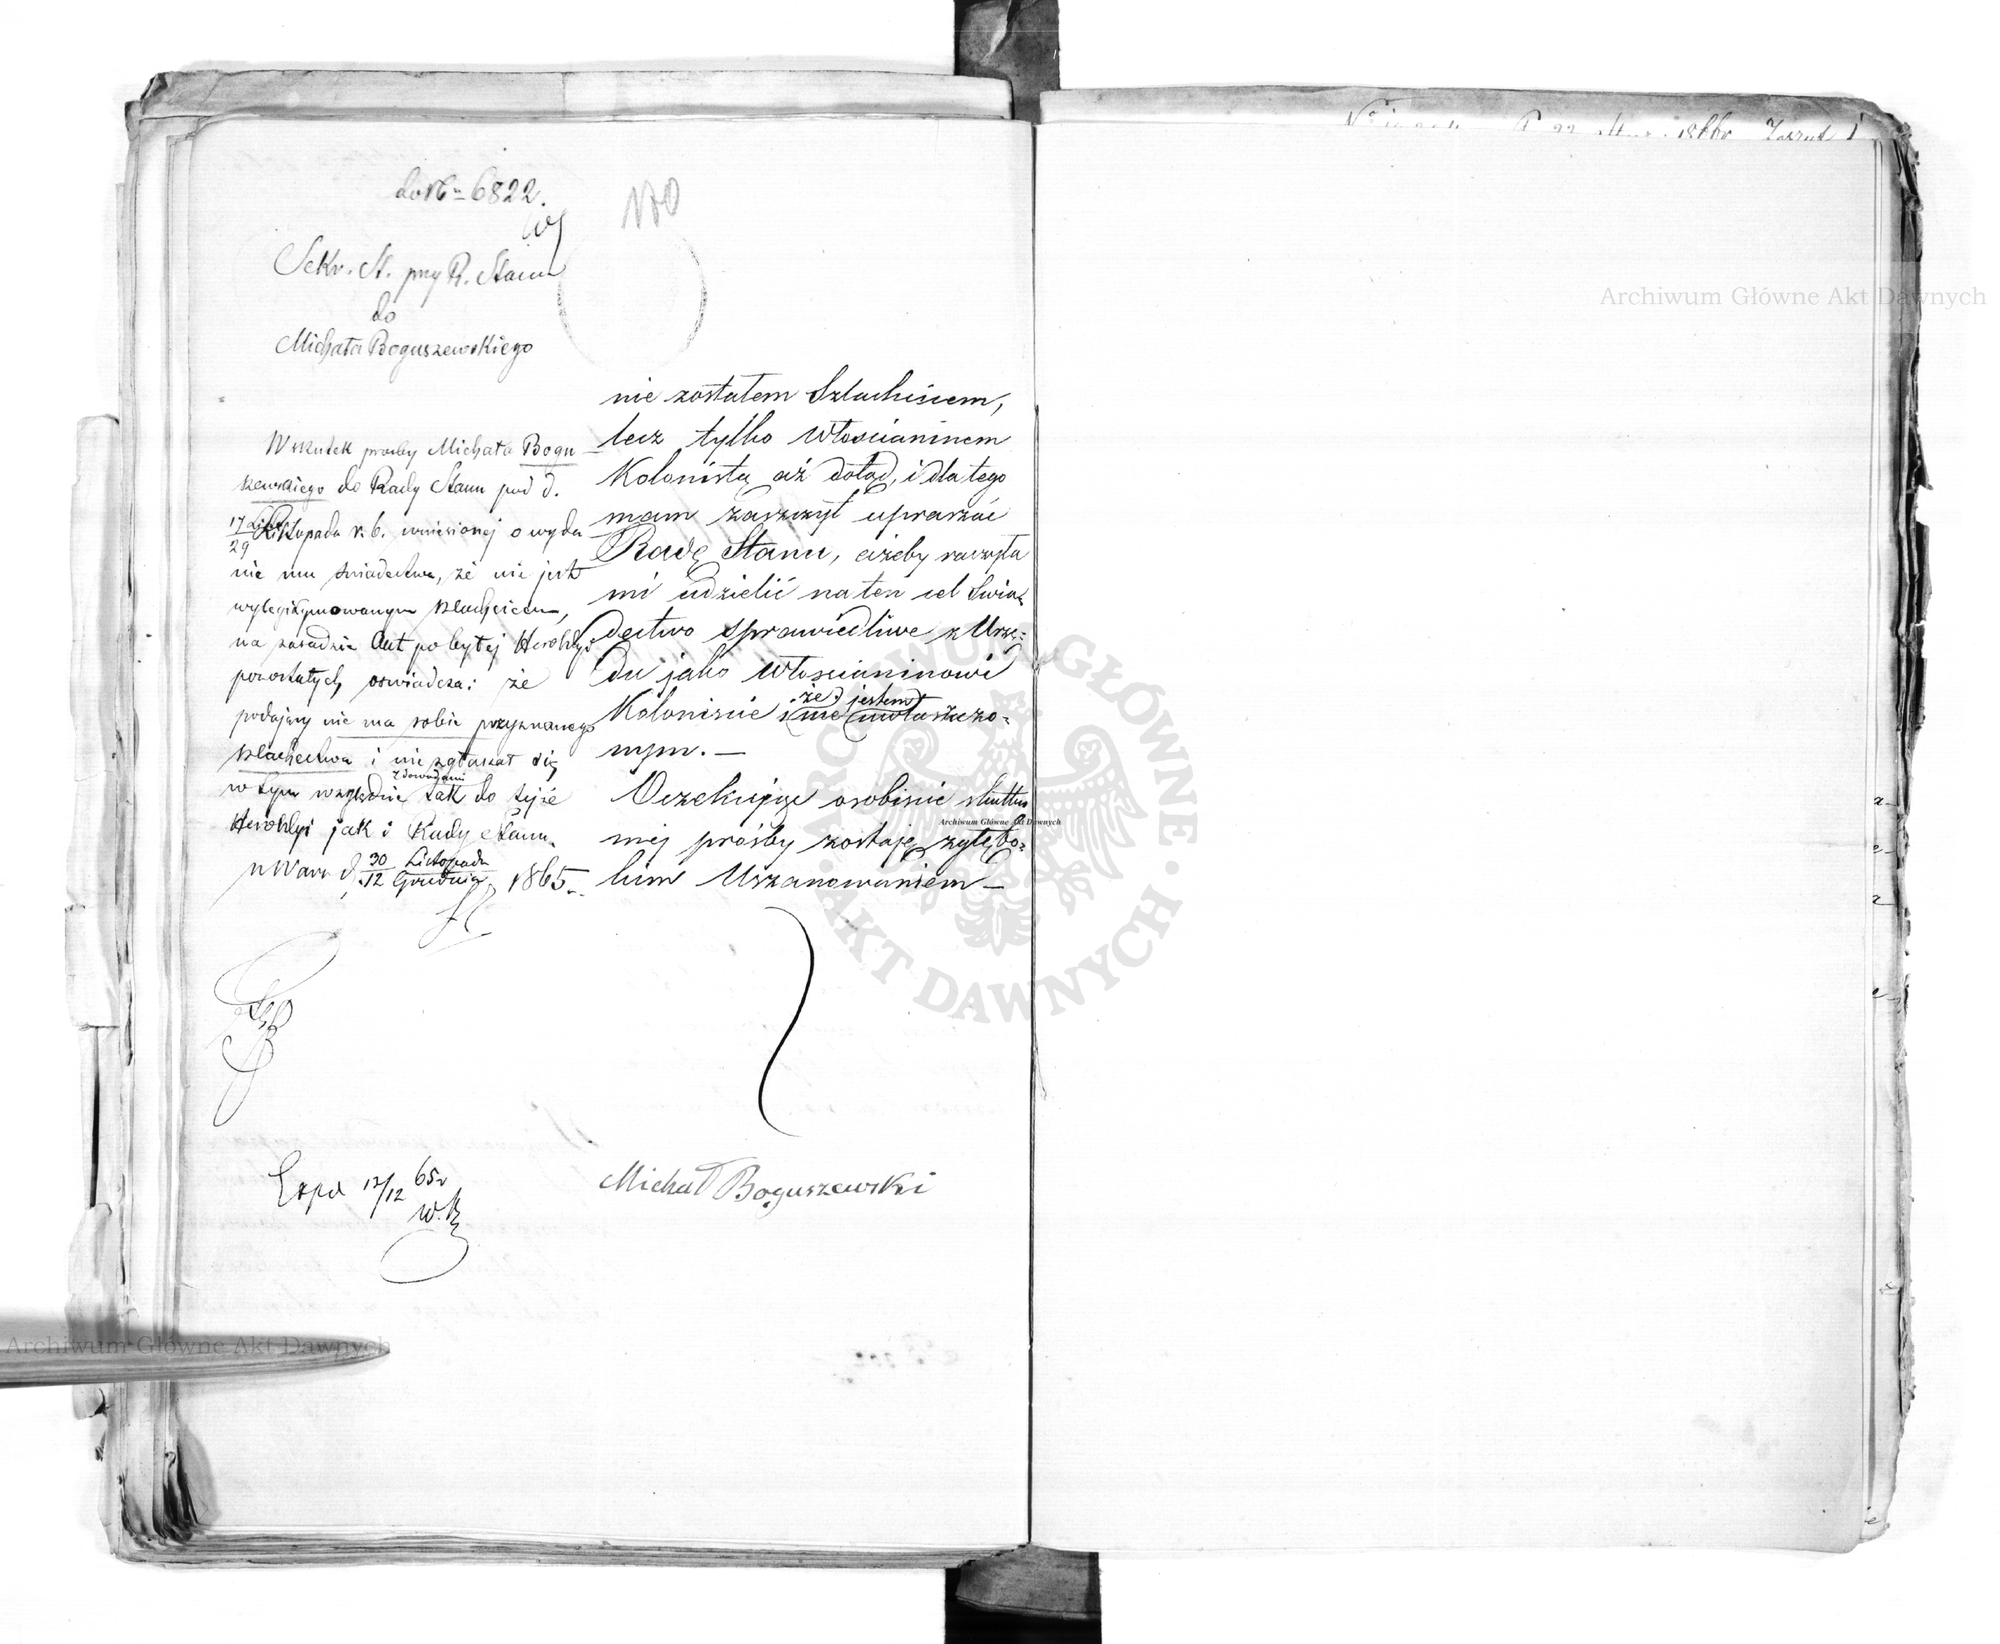 do No 6822.
170
Sekr. St. przy R. Stanu
do
Michała Boguszewskiego
Wskutek prośby Michała Bogu
szewskiego do Rady Stanu pod d.
17/29 Listopada r. b. wniesionej o wyda
nie mu świadectwa, że nie jest
wylegitymowanym szlachcicem,
na zasadzie Akt po byłej Heroldyi
pozostałych, oświadcza: że
podający nie ma sobie przyznanego
szlachectwa i nie zgłaszał się
z dowodami
w tym względzie tak do tejże
Heroldyi jak i Rady Stanu.
w Warsz. d. 30 Listopada / 12 Grudnia 1865 r.
Exp. 12/12 65 r
nie zostałem Szlachcicem,
lecz tylko Włościaninem
Kolonistą aż dotąd, i dla tego
mam zaszczyt upraszać
Radę Stanu, ażeby raczyła
mi udzielić na ten cel Swia=
dectwo sprawiedliwe z Urzę=
du jako Włościaninowi
że jestem
Koloniście i nie
nym. —
Oczekując osobiście skutku
mej prośby zostaję z głębo=
kim Uszanowaniem —
Michał Boguszewski
Archiwum Główne Akt Dawnych
Archiwum Główne Akt Dawnych
Archiwum Główne Akt Dawnych
ARCHIWUM GŁÓWNE · AKT DAWNYCH ·